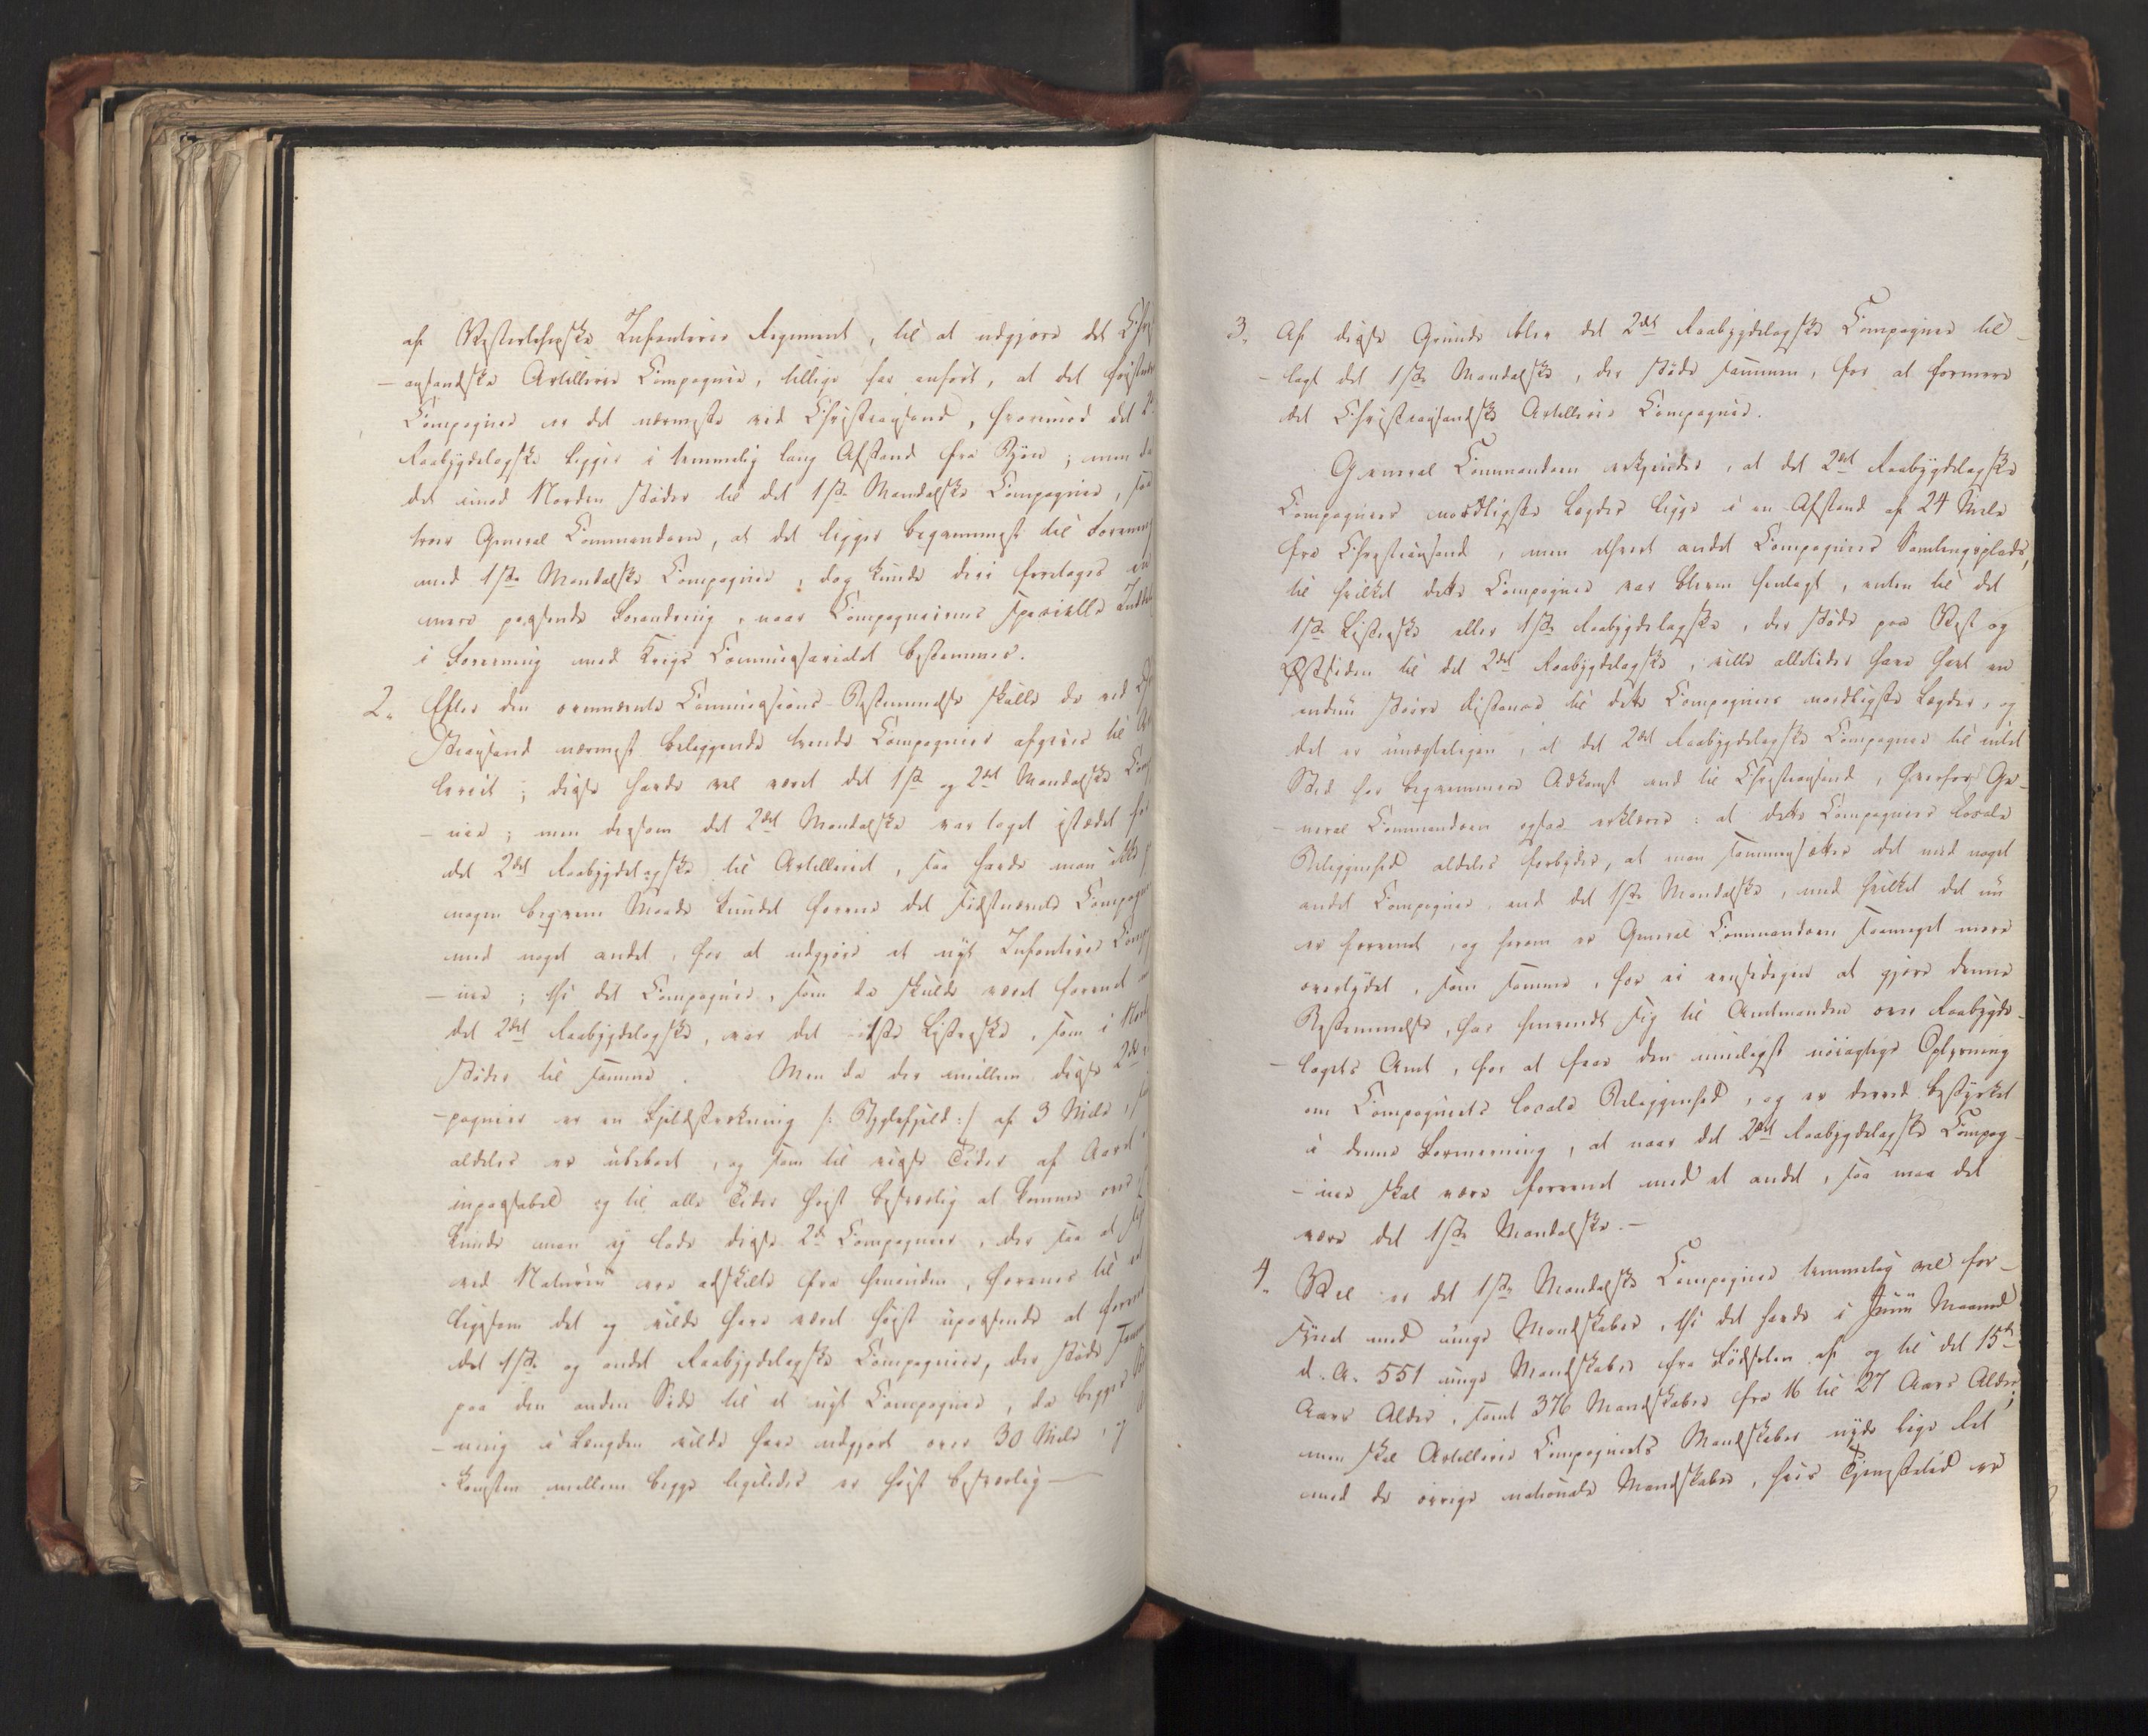 af Vesterlehnske Infanterie Regiment, til at udgjøre det Chri
-ansandske Artillerie Compagnie, tillige har anført, at det
Compagnie er det nærmeste ved Christiansand, hvorimod det 2
Raabygdelagske ligger i temmelig lang Afstand fra Byen; men da
det imod Norden støder til det 1ste Mandalske Compagnie, saa
troer General Commandoen, at det ligger beqvemmest til Forening
med 1ste Mandalske Compagnie, dog kunde deri foretages en
mere passende Forandring, naar Compagniernes specielle
i Forening med Krigs Commissariatet bestemmes.
2. Efter den ovennævnte Commissions-Bestemmelse skulde de ved Chri
stiansand nærmest beliggende tvende Compagnier afgives til Ar
leriet; disse havde vel været det 1ste og 2det Mandalske Comp
-nie; men dersom det 2det Mandalske var taget istædet for
det 2det Raabygdelagske til Artilleriet, saa havde man ikke p
nogen beqvem Maade kundet forene det sidstnævnte Compag
med noget andet, for at udgjøre et nyt Infanterie Comp
-nie; thi det Compagnie, som da skulde været forenet m
det 2det Raabygdelagske, var det 1ste Listerske, som i Nord
støder til samme. Men da der imellem disse 2de
-pagnier er en Fjeldstrekning /: Byglefjeld :/ af 3 Miile,
aldeles er ubeboet, og som til visse Tider af Aaret
inpassabel og til alle Tider høist besværlig at komme over
kunde man ej lade disse 2de Compagnier, der saa at sig
ved Naturen ere adskilte fra hinanden, forenes til et
ligesom det og vilde have været høist upassende at foren
det 1ste og andet Raabygdelagske Compagnier, der støde sammen
paa den anden Side til et nyt Compagnie, da begges
-ning i Længden vilde have udgjort over 30 Miile, og
-komsten mellem begge ligeledes er høist besværlig —
3. Af disse Grunde blev det 2det Raabygdelagske Compagnie til-
-lagt det 1ste Mandalske, der støde sammen, for at formere
det Christiansandske Artillerie Compagnie.
General Commandoen erkjender, at det 2det Raabygdelagske
Compagnies nordligste Lægder ligge i en Afstand af 24 Miile
fra Christiansand, men ethvert andet Compagnies Samlingsplads,
til hvilket dette Compagnie var bleven henlagt, enten til det
1ste Listerske eller 1ste Raabygdelagske, der støde paa Vest og
Østsiden til det 2det Raabygdelagske, vilde alletider have havt en
endnu større Distance til dette Compagnies nordligste Lægder, og
det er unægteligen, at det 2det Raabygdelagske Compagnie til intet
Sted har beqvemmere Adkomst end til Christiansand, hvorfor Ge-
-neral Commandoen ogsaa erklærer: at dette Compagnies locale
Beliggenhed aldeles forbyder, at man sammensætter det med noget
andet Compagnie, end det 1ste Mandalske, med hvilket det nu
er forenet, og herom er General Commandoen saameget mere
overtydet, som samme, for ei eensidigen at gjøre denne
Bestemmelse, har henvendt sig til Amtmanden over Raabygde-
-lagets Amt, for at faae den muligst nøiagtige Oplysning
om Compagniets locale Beliggenhed, og er derved bestyrket
i denne Formening, at naar det 2det Raabygdelagske Compag-
-nie skal være forenet med et andet, saa maa det
være det 1ste Mandalske. —
4. Vel er det 1ste Mandalske Compagnie temmelig vel for-
synet med unge Mandskaber, thi det havde i Junii Maaned
d. A. 551 unge Mandskaber fra Fødselen af og til det 15de
Aars Alder, samt 376 Mandskaber fra 16 til 27 Aars Alder,
men skal Artillerie Compagniets Mandskaber nyde lige Ret
med de øvrige nationale Mandskaber, hvis Tjenestetid er